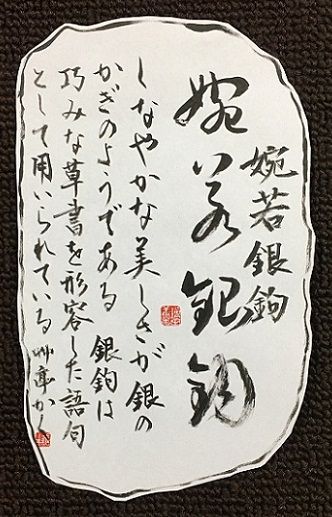 婉若銀鉤
婉若銀鉤
しなやかな美しさが銀の
かぎのようである 銀鉤は
巧みな草書を形容した語句
として用いられている かく